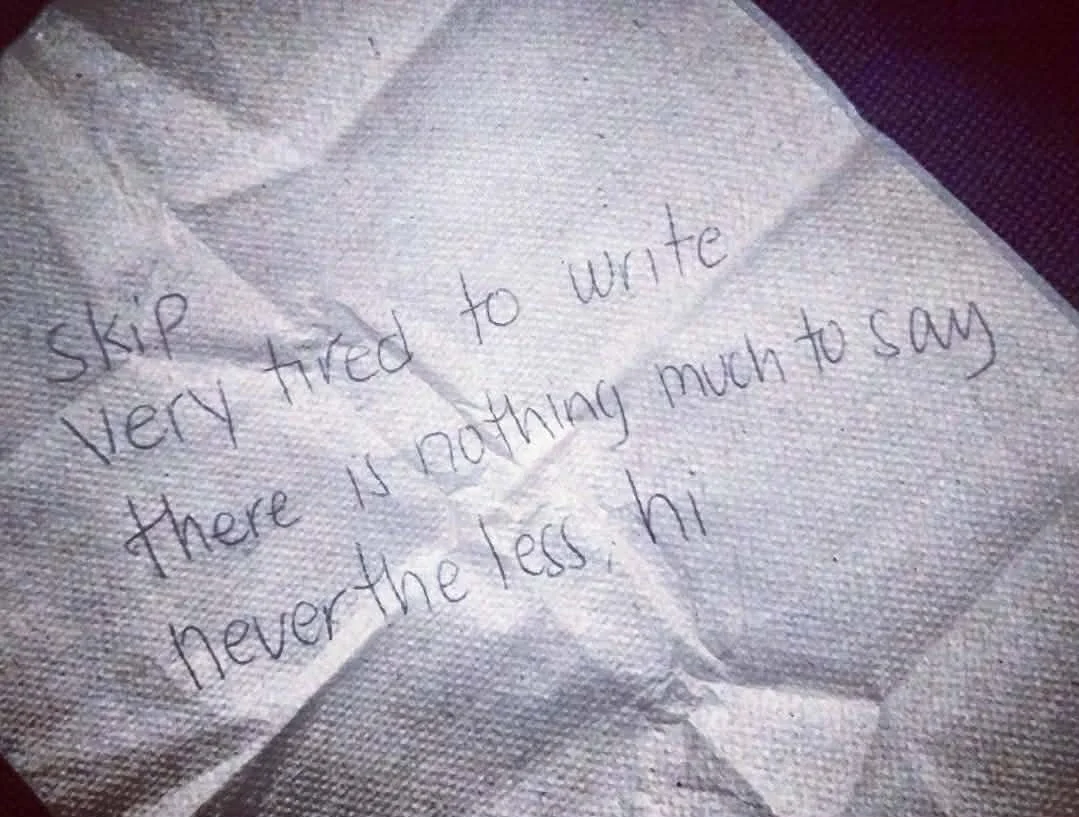 skip
very tired to write
there is nothing much to say
never the less, hi